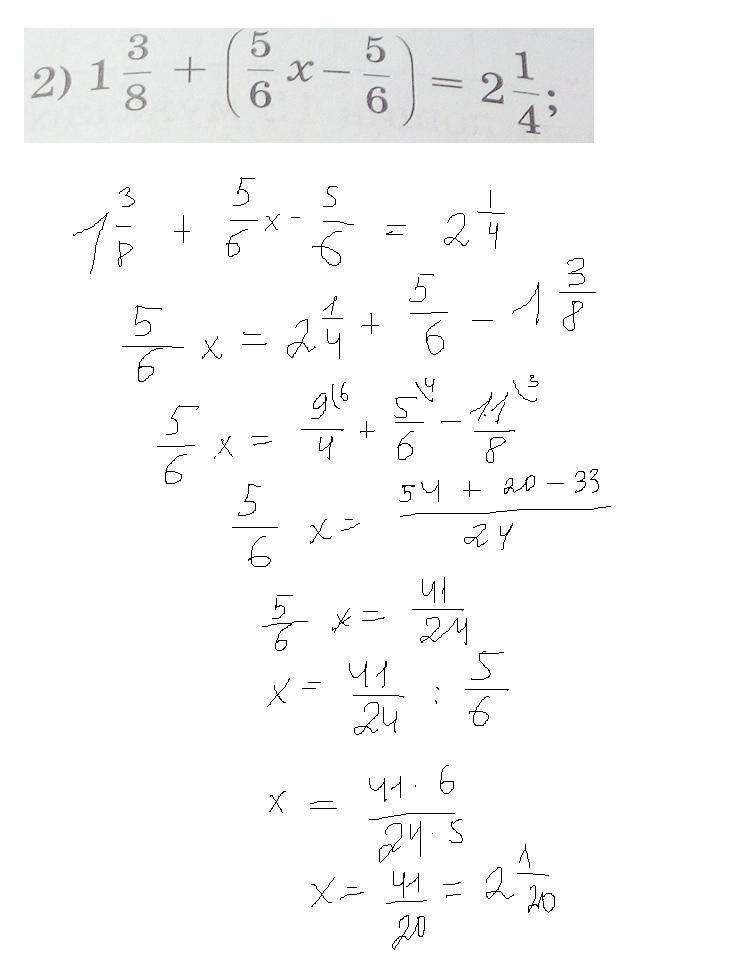 2) 1 3/8 + (5/6 x − 5/6) = 2 1/4;
1 3/8 + 5/6 x - 5/6 = 2 1/4
5/6 x = 2 1/4 + 5/6 - 1 3/8
5/6 x = 9/4 \6 + 5/6 \4 - 11/8 \3
5/6 x = (54 + 20 - 33)/24
5/6 x = 41/24
x = 41/24 : 5/6
x = (41 · 6)/(24 · 5)
x = 41/20 = 2 1/20